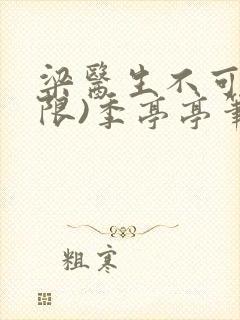 梁医生不可
限)季亭亭筆
粗寒